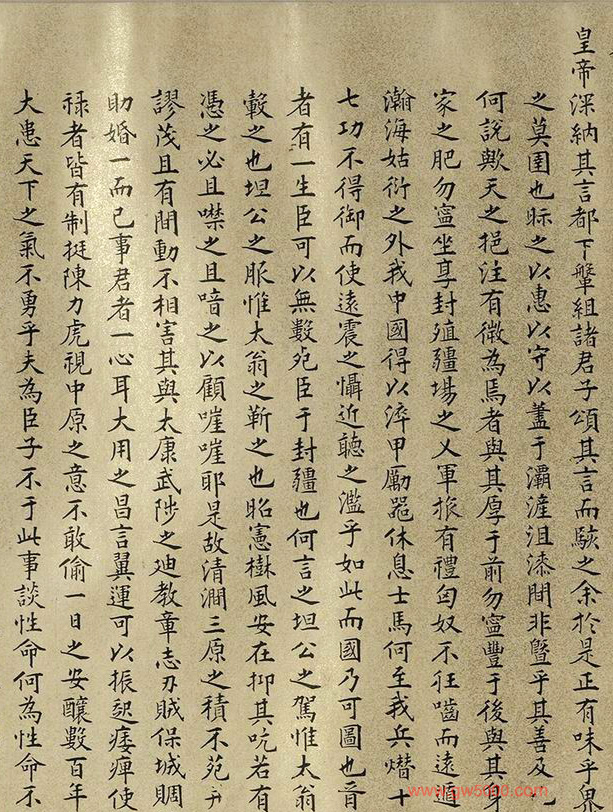 皇帝深納其言都下輦組諸君子頌其言而駭之余於是正有味乎界
之莫圉也眎之以惠以守以蓋于灞滻沮漆閒非暨乎其善及
何說歟天之挹注有微為焉者與其厚于前勿寍豐于後與其身
家之肥勿寍坐享封殖疆埸之乂軍旅有禮匈奴不狂嚙而遠遁
瀚海姑衍之外我中國得以淬甲勵器休息士馬何至我兵熸十
七功不得御而使遠震之懾近聽之濫乎如此而國乃可圖也晉
者有一生臣可以無數死臣于封疆也何言之坦公之駕惟太翁
轂之也坦公之服惟太翁之靳之也昭憲樹風安在抑其吭若有
憑之必且噤之且喑之以顧嗺嗺耶是故清澗三原之積不苑
謬茂且有間動不相害其與太康武陟之迪教章志刃賊保城賙
助婚一而已事君者一心耳大用之昌言翼運可以振起痿痺使
祿者皆有制挺陳力虎視中原之意不敢偷一日之安釀數百年
大患天下之氣不勇乎夫為臣子不于此事談性命何為性命不